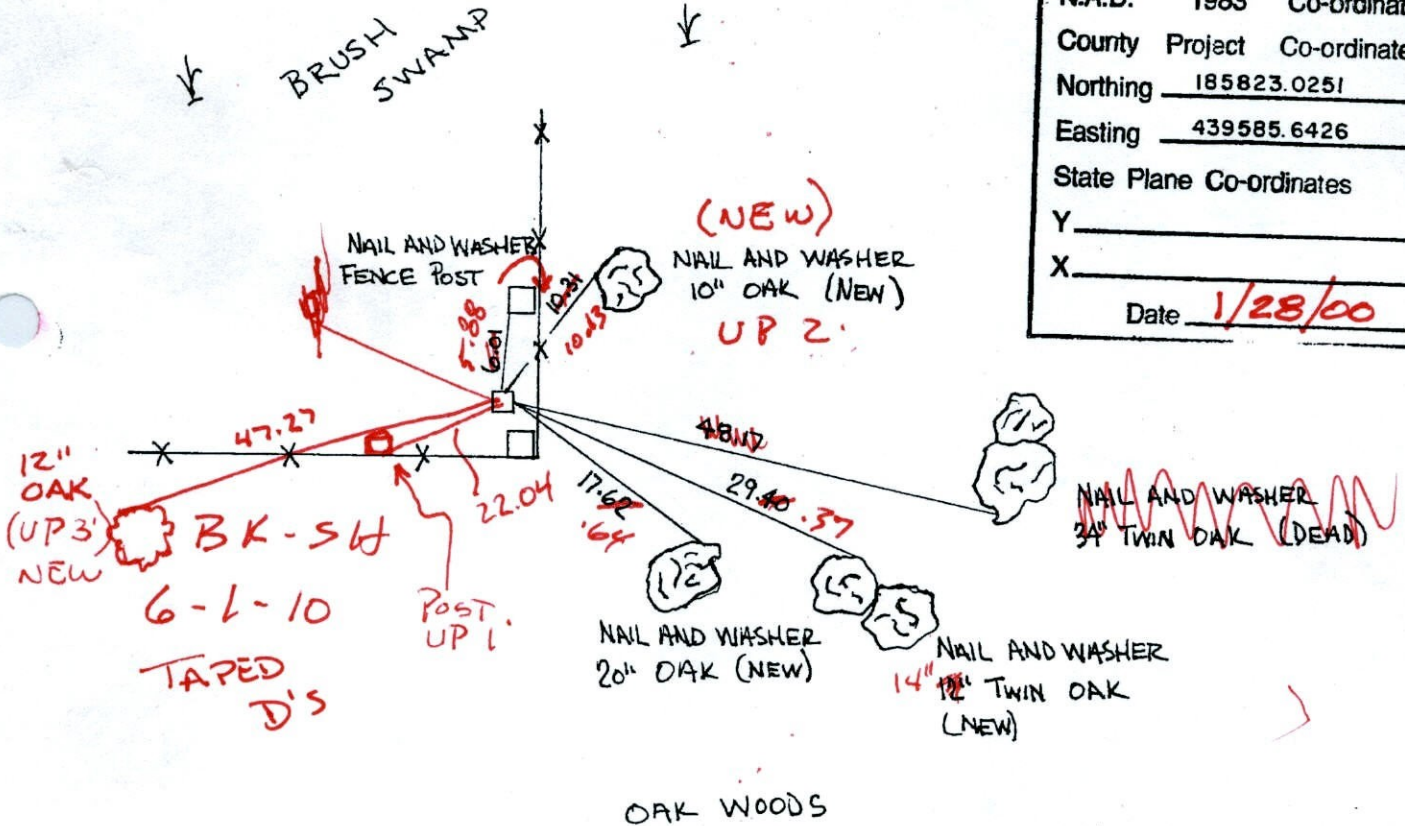 N.A.D. 1983 Co-ordinat
County Project Co-ordinate
Northing 185823.0251
Easting 439585.6426
State Plane Co-ordinates
Y
X
Date 1/28/00
BRUSH
SWAMP
(NEW)
NAIL AND WASHER
FENCE POST
NAIL AND WASHER
10" OAK (NEW)
UP 2'
10.31
10.13
5.88
6.01
47.27
22.04
48.17
29.40 .37
17.62
.64
12"
OAK
(UP 3')
NEW
BK-SH
6-1-10
TAPED
D'S
POST
UP 1'
NAIL AND WASHER
34" TWIN OAK (DEAD)
NAIL AND WASHER
20" OAK (NEW)
NAIL AND WASHER
14" 12" TWIN OAK
(NEW)
OAK WOODS